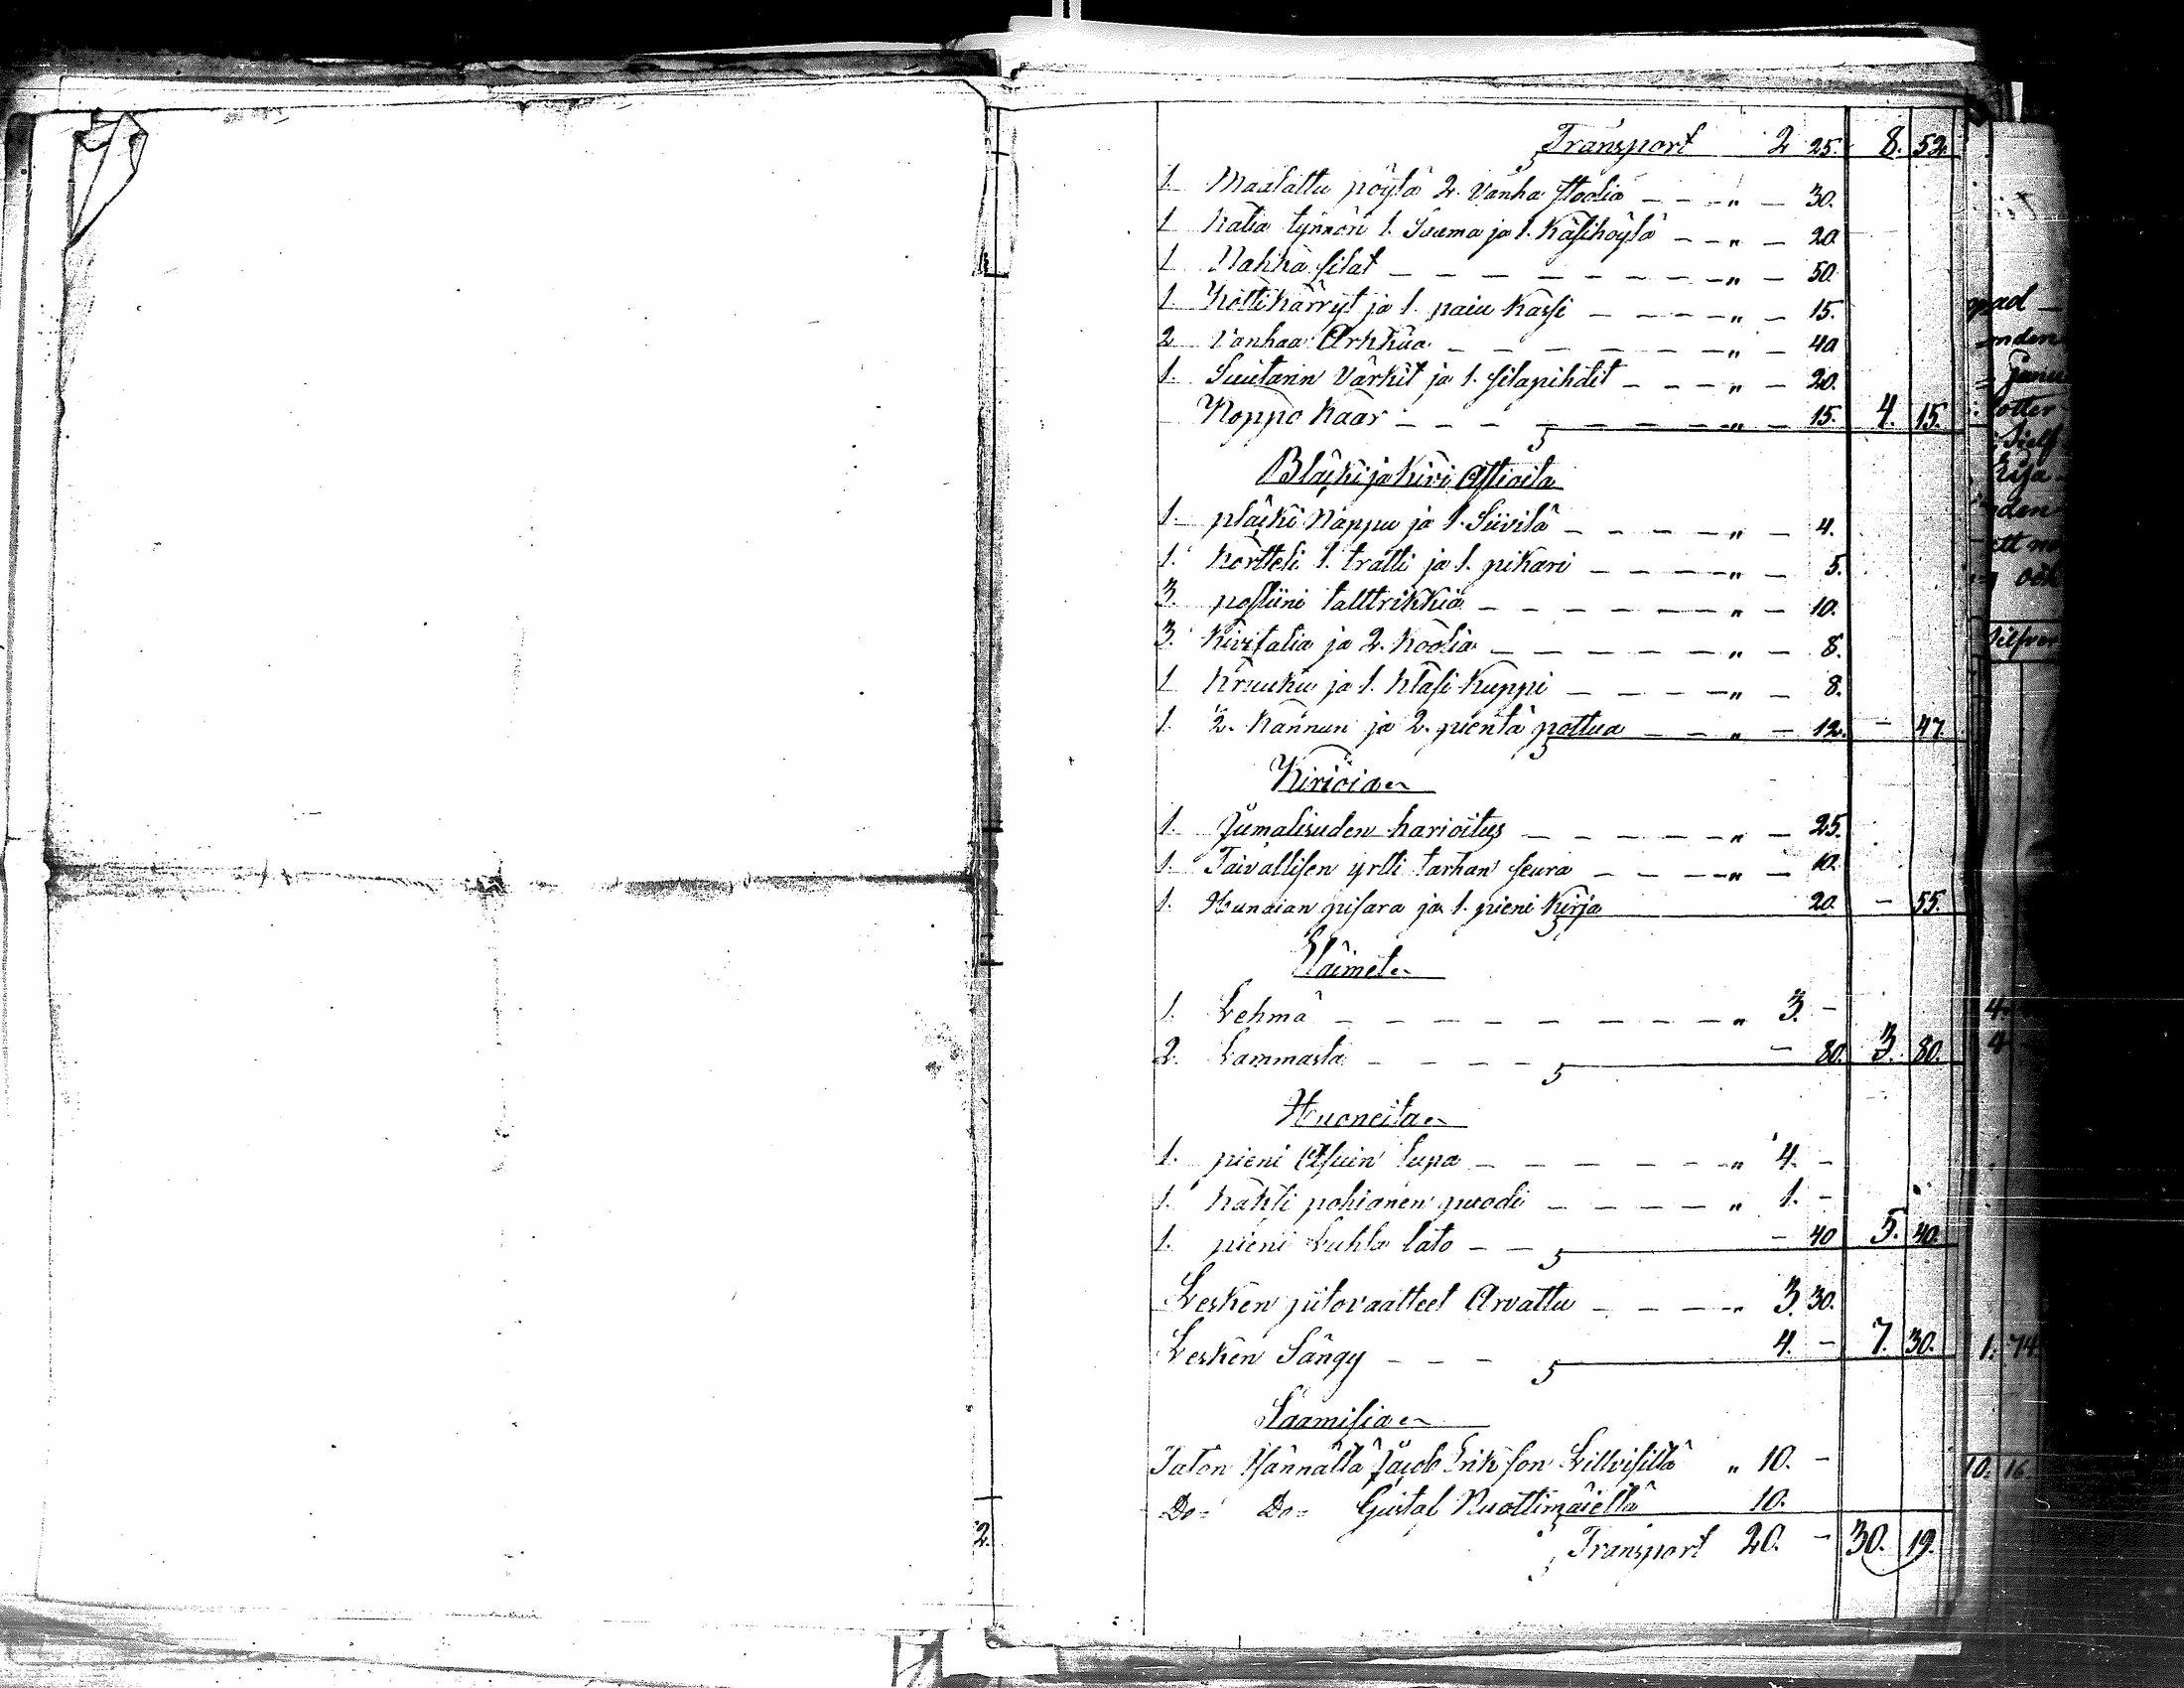 Transport 2 25. 8. 52.
1. Maalattu pöytä 2. vanha stoolia — — — " — 30.
1 Kalia tynnöri 1. Suema ja 1. Käsihöylä — — " — 20.
1 Nahka silat — — — — — — — — " — 50.
1. Kottikärryt ja 1. paiu Kassi — — — — " — 15.
2 Vanhaa Arkkua — — — — — — — " — 40
1. Suutarin Värkit ja 1. silapihdit — — — " — 20.
Koppo Käär — — — — — — — " — 15. 4. 15.
Bläkki ja Kivi Astioita
1. pläkki Nappu ja 1. Siivilä — — — — — " — 4.
1. Kortteli 1. tratti ja 1. pikari — — — — " — 5.
3. posliini talttrikkia — — — — — — — " — 10.
3. Kivitalia ja 2. Koolia — — — — — — " — 8.
1 Kruuku ja 1. Klasi Kuppi — — — — " — 8.
1 2. Kannun ja 2. pientä pottua — — " — 12. — 47.
Kirioia
1. Jumalisuden harioitus — — — — — " — 25.
1. Taivallisen yrtti tarhan seura — — — — " — 10.
1. Hunaian pisara ja 1. pieni Kirja 20. — 55.
Eläimet
1. Lehmä — — — — — — — — " 3. —
2. Lammasta — — — — — 80. 3. 80.
Huoneita
1. pieni Asuin tupa — — — — — " 4. —
1. Kahti pohianen puodi — — — — " 1. —
1. pieni Luhta lato — — — 40 5. 40.
Lesken pitovaatteet Arvattu — — — " 3. 30.
Lesken Sängy — — — 4. — 7. 30.
Saamisia
Talon Isännältä Jacob Erikson " 10. —
Do= Do= Gustaf 10.
Transport 20. — 30. 19.
2.